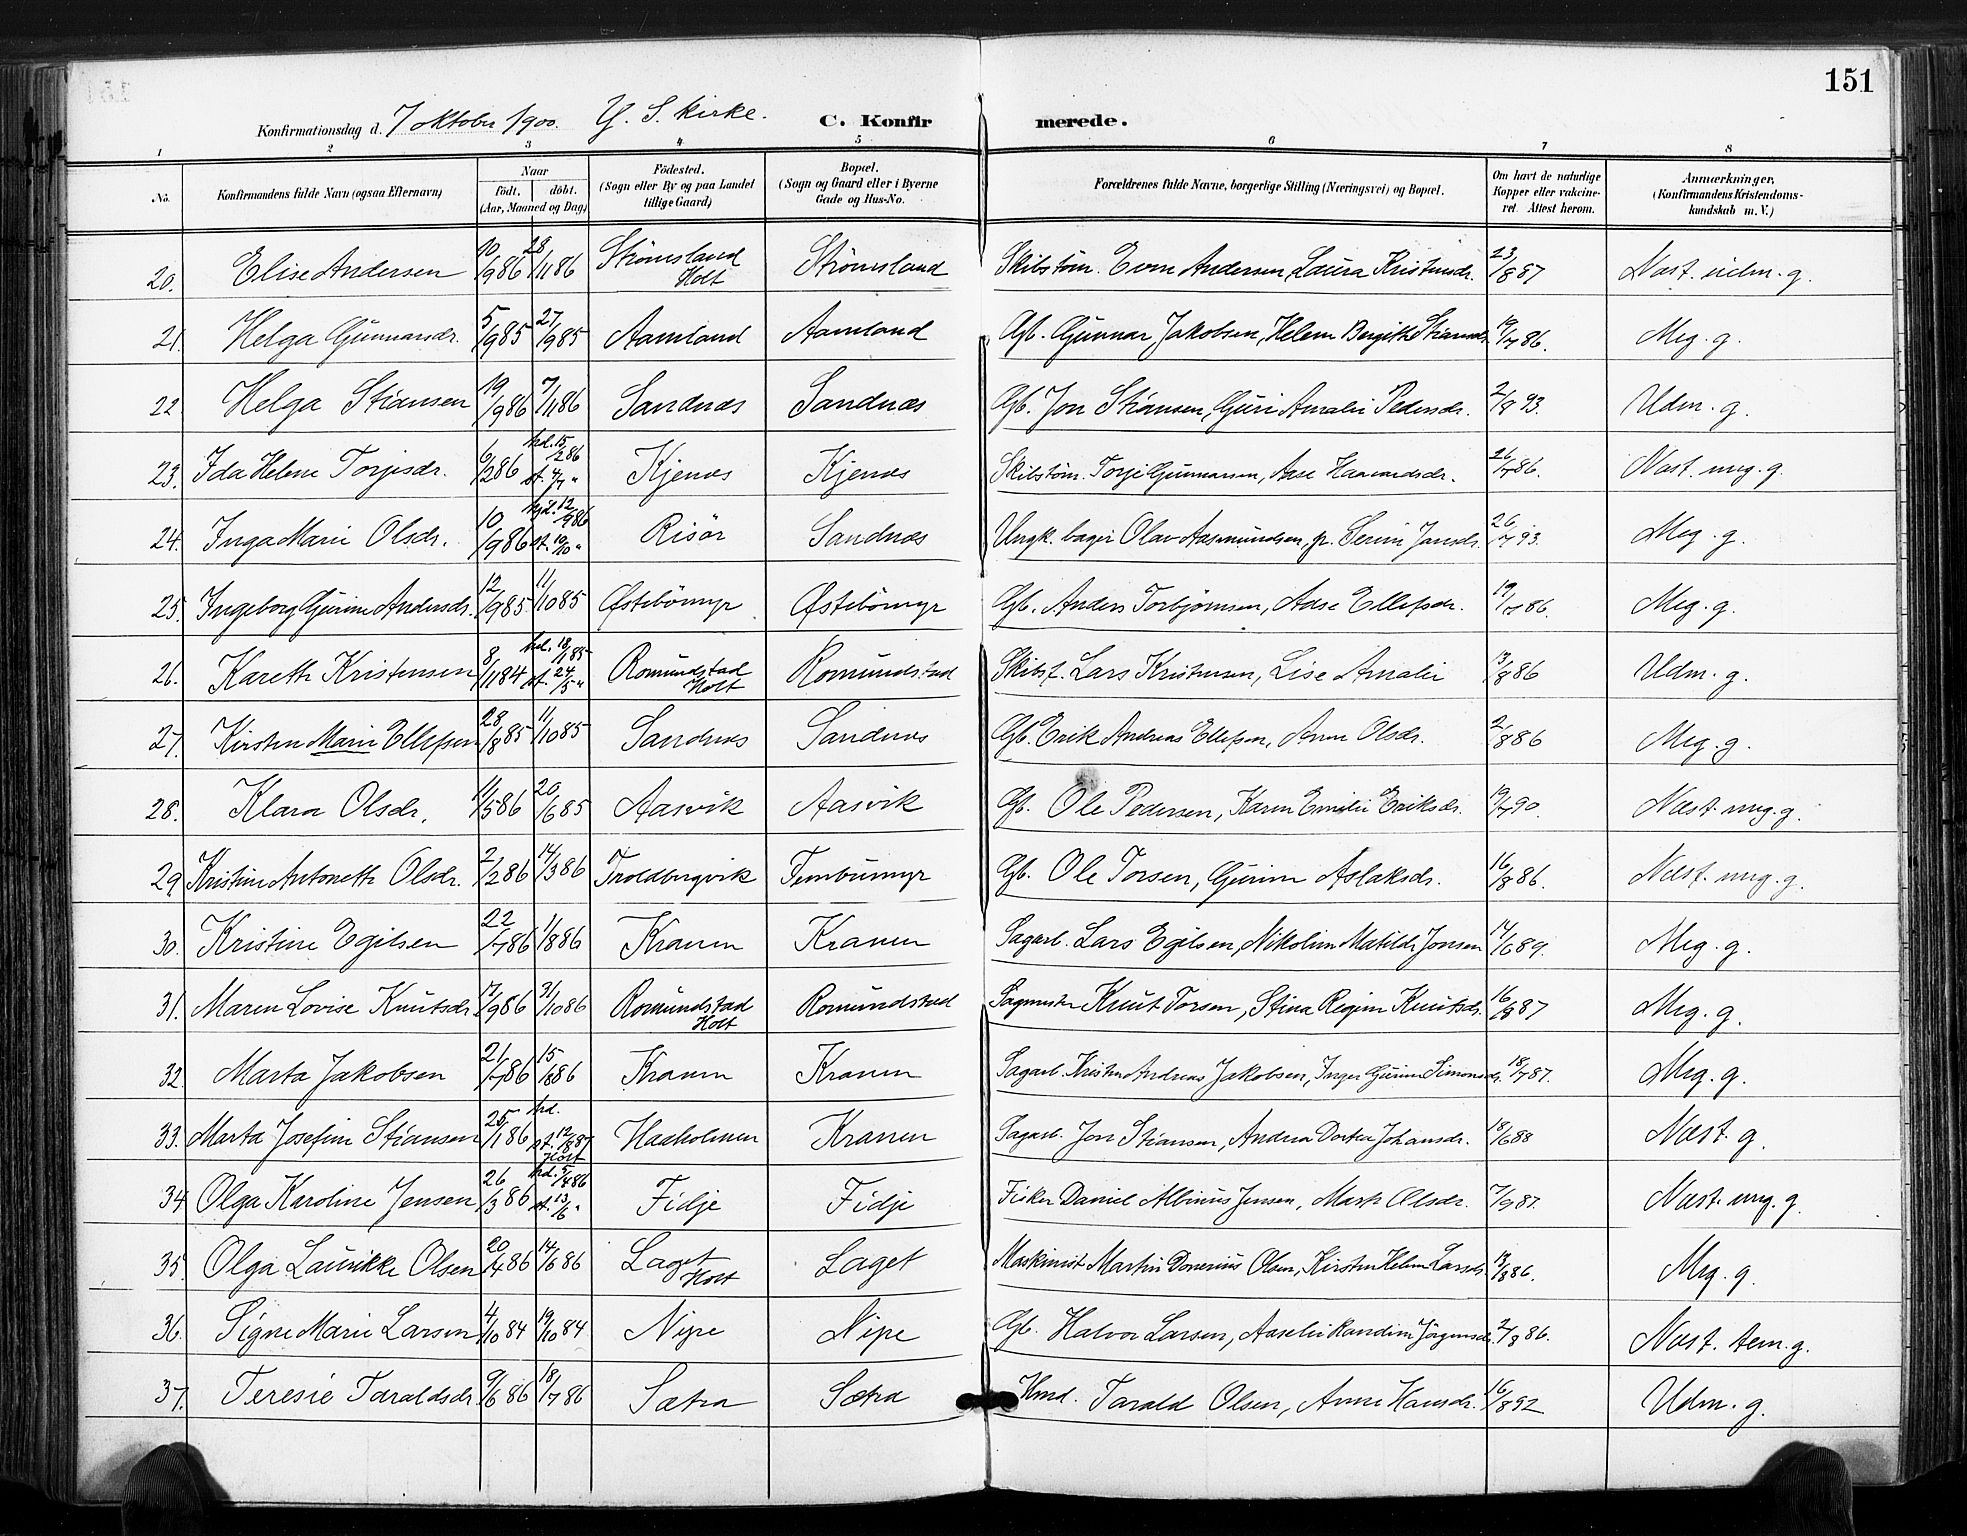 151
Konfirmationsdag d. 7 oktober 1900. Y. S. kirke. C. Konfirmerede.
1 2 3 4 5 6 7 8
No. Konfirmandens fulde Navn (ogsaa Efternavn) Naar født, døbt. (Aar, Maaned og Dag) Fødested. (Sogn eller By og paa Landet tillige Gaard) Bopæl. (Sogn og Gaard eller i Byerne Gade og Hus-No. Forældrenes fulde Navne, borgerlige Stilling (Næringsvei) og Bopæl. Om havt de naturlige Kopper eller vakcineret. Attest herom. Anmærkninger, (Konfirmandens Kristendomskundskab m. V.)
20. Elise Andersen 10/9 86 28/11 86 Strømsland Holt Strømsland Skibstøm. Even Andersen, Laura Kristensdr. 23/8 87 Næst. udm. g.
21. Helga Gunnarsdr. 5/9 85 27/9 85 Aamland Aamland Gb. Gunnar Jakobsen, Helene Bergithe Stiansdr. 19/7 86. Meg. g.
22 Helga Stiansen 19/9 86 7/11 86 Sandnæs Sandnæs Gb. Jon Stiansen, Guri Amalie Pedersdr. 2/8 93. Udm. g.
23. Ida Helene Torjesdr. 6/2 86 hd. 15/2 86 st. 4/7 " Kjenæs Kjenæs Skibstøm. Torje Gunnarsen, Aase Haavardsdr. 26/7 86. Næst. meg. g.
24. Inga Marie Olsdr. 10/9 86 hjd. 12/9 86 st. 10/10 " Risör Sandnæs Ungk. bager Olav Aasmundsen, p. Serine Jansdr. 26/7 93. Meg. g.
25. Ingeborg Gurine Andersdr. 12/9 85 11/10 85 Østebömyr Østebömyr Gb. Anders Torbjørnsen, Aase Ellefsdr. 19/7 86. Meg. g.
26. Kareth Kristensen 8/11 84 hd. 18/1 85 st. 24/5 " Romundstad Holt Romundstad Skibst. Lars Kristensen, Lise Amalie 13/8 86 Udm. g.
27. Kirsten Marie Ellefsen 28/8 85 11/10 85 Sandnæs Sandnæs Gb. Erik Andreas Ellefsen, Anne Olsdr. 2/8 86 Meg. g.
28. Klara Olsdr. 11/5 86 20/6 85 Aasvik Aasvik Gb. Ole Pedersen, Karen Emilie Eriksdr. 19/7 90. Næst. meg. g.
29. Kristine Antonette Olsdr. 2/2 86 14/3 86 Troldbergvik Gb. Ole Torsen, Gurine Aslaksdr. 16/8 86. Næst. meg. g.
30. Kristine Egilsen 22/7 86 1/8 86 Kranen Kranen Sagarb. Lars Egilsen, Nikoline Matilde Jonsen 14/6 89. Meg. g.
31. Maren Lovise Knutsdr. 17/9 86 31/10 86 Romundstad Holt Romundstad Sagmester Knut Torsen, Stina Regine Knutsdr. 16/8 87 Meg. g.
32. Marta Jakobsen 21/7 86 15/8 86 Kranen Kranen Sagarb. Kristen Andreas Jakobsen, Inger Gurine Simonsdr. 18/7 87. Meg. g.
33. Marta Josefine Stiansen 25/1 86 hd. st. 12/8 87 Holt Haaholmen Kranen Sagarb. Jon Stiansen, Andrea Dortea Johansdr. 18/6 88 Næst. g.
34 Olga Karoline Jensen 26/3 86 hd. 5/4 86 st. 13/6 " Fidje Fidje Fisker Daniel Albinus Jensen, Marte Olsdr. 7/9 87. Næst. meg. g.
35. Olga Laurikke Olsen 20/4 86 14/6 86 Laget Holt Laget Maskinist Martin Donenius Olsen, Kirsten Helene Larsdr. 13/8 86. Meg. g.
36. Signe Marie Larsen 4/10 84 19/10 84 Nipe Nipe Gb. Halvor Larsen, Aaselie Randine Jörgensdr. 2/8 86. Næst. tem. g.
37. Teresie Taraldsdr. 9/6 86 18/7 86 Sætra Sætra Hmd. Tarald Olsen, Anne Hansdr. 16/8 92 Udm. g.